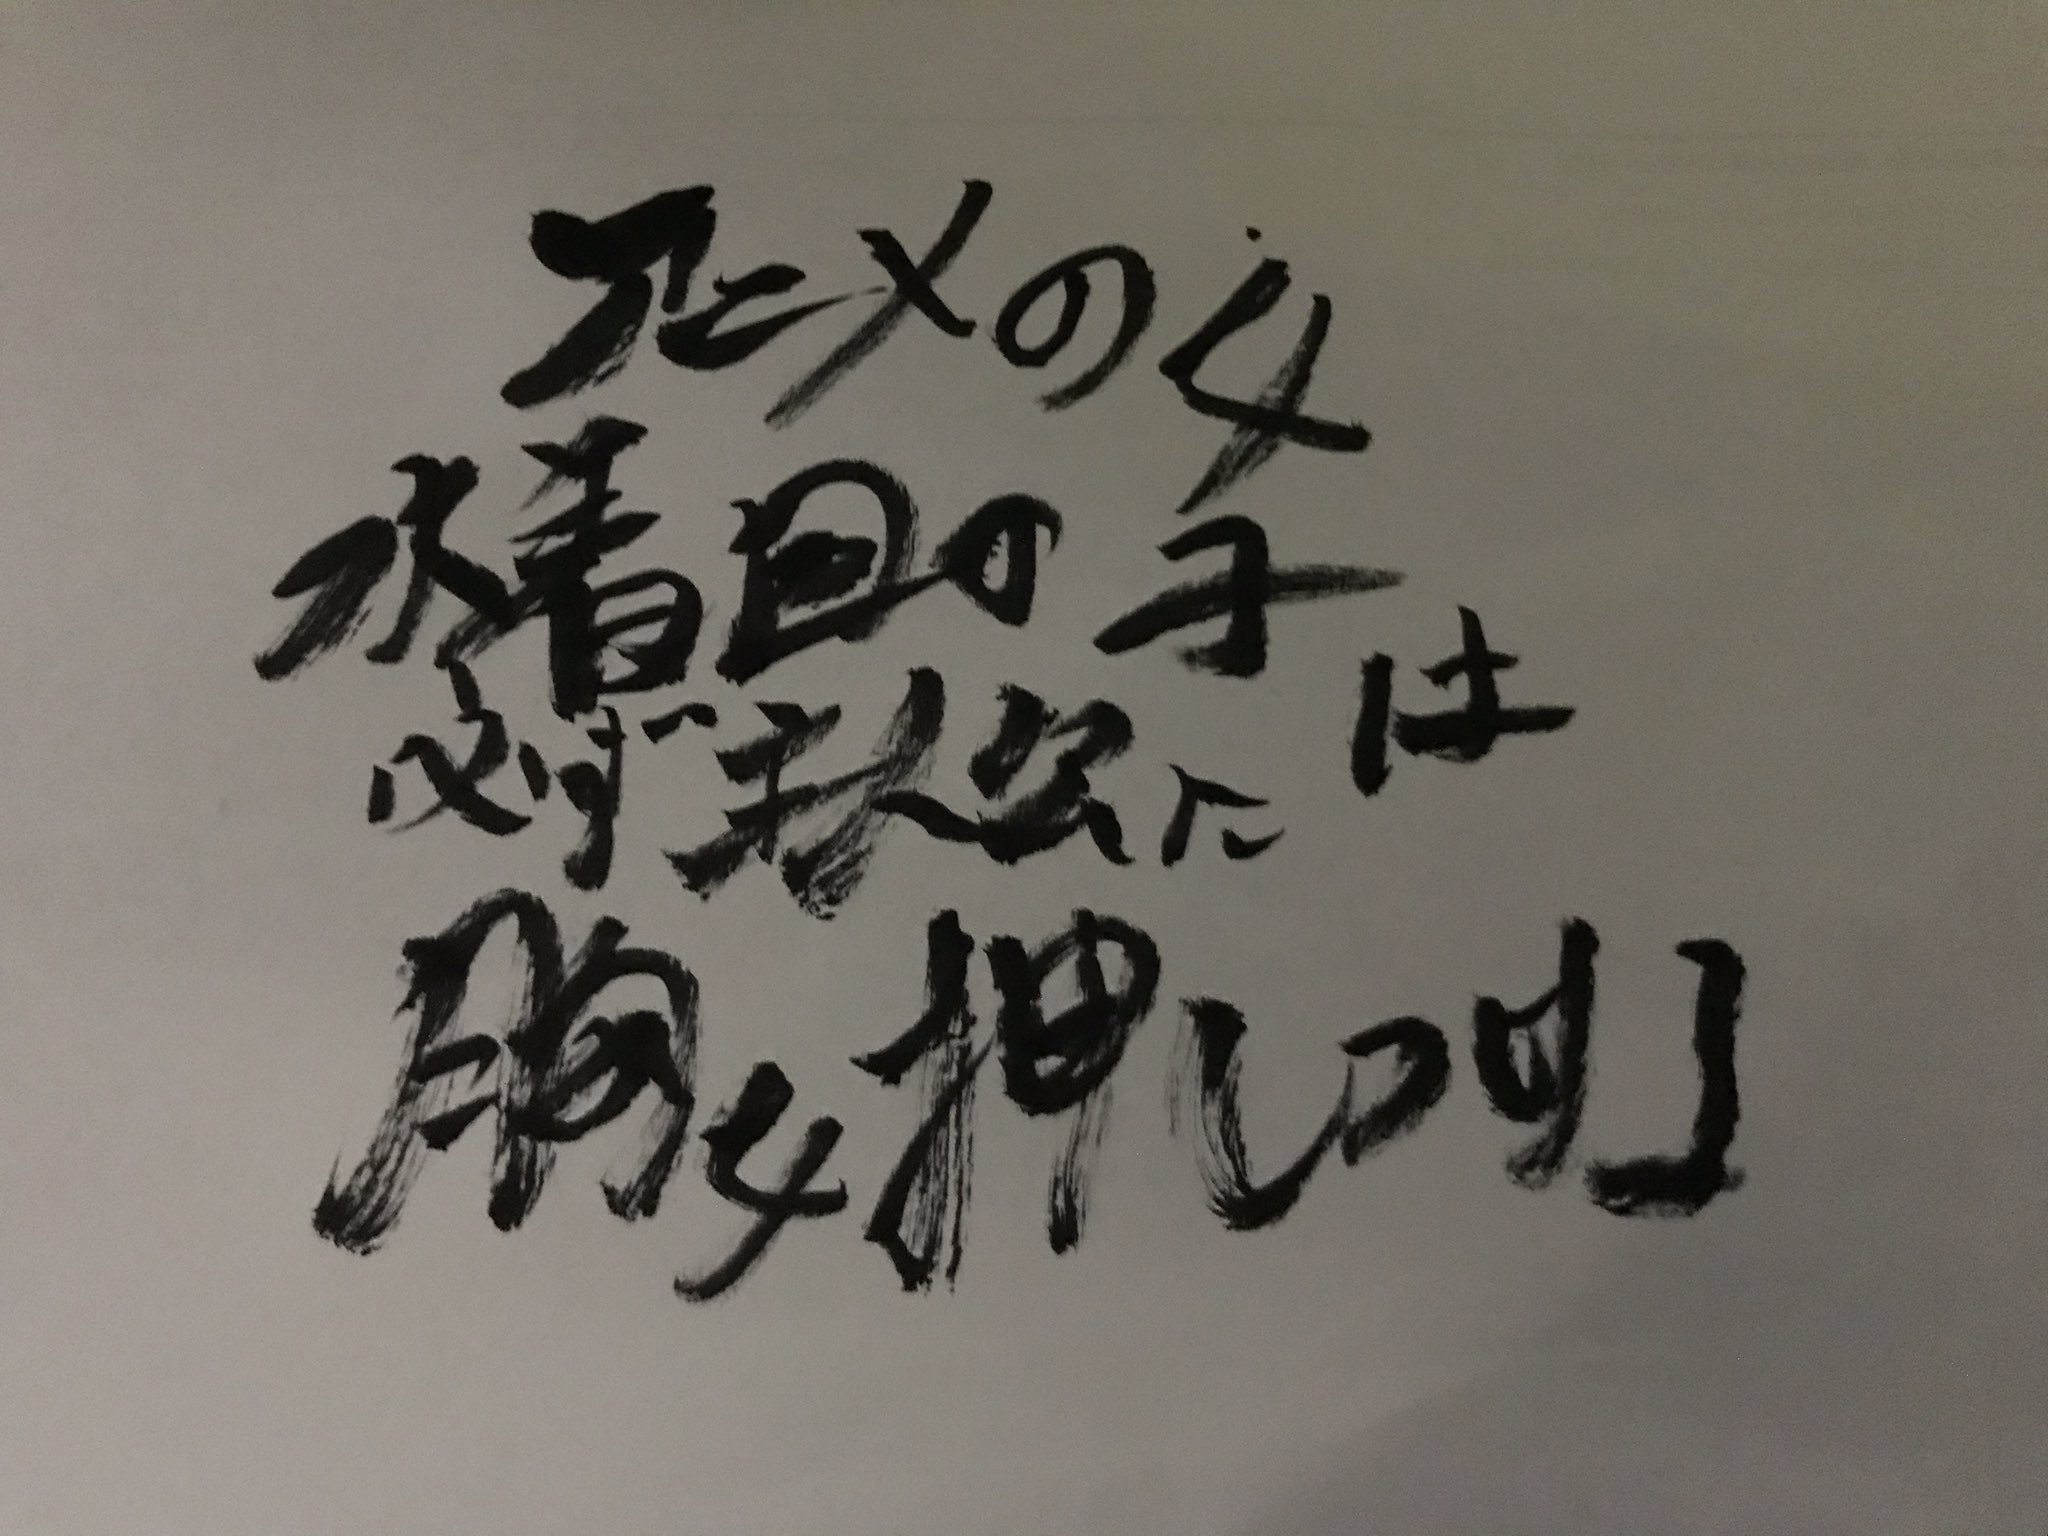 アニメの
水着回の
女子は
必ず主人公に
胸を押しつける